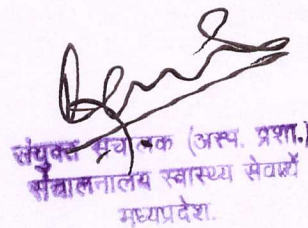 संयुक्त संचालक (अस्प. प्रशा.)
संचालनालय स्वास्थ्य सेवायें
मध्यप्रदेश.